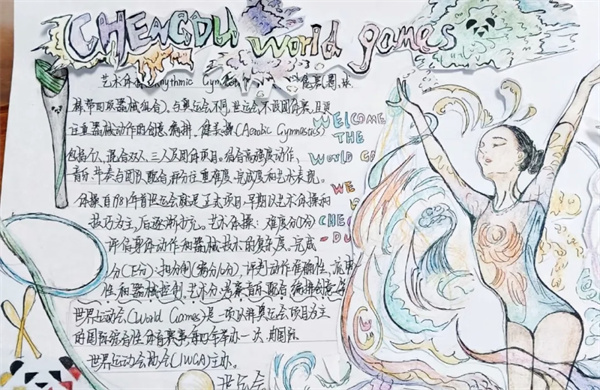 CHENGDU world games
艺术体操(Rhythmic Gym
棒带四项器械组合),与奥运会不同,世运会不设团体赛,且更
注重器械动作的创意编排,健美操(Aerobic Gymnastics)
包括个人、混合双人、三人及团体项目。结合高强度动作,
音乐节奏与团队配合,评分注重难度、完成度和艺术表现。
体操自1981年首届世运会就是正式项目,早期以艺术体操和
技巧为主,后逐渐扩充。艺术体操:难度分(D分)
评估身体动作和器械技术的复杂度,完成
分(E分)扣分制(满分10分),评判动作准确性,流畅
性和器械控制,艺术分:考察音乐配合编排创意
世界运动会(World Games)是一项以非奥运会项目为主
的国际综合性体育赛事,每四年举办一次,由国际
世界运动会协会(IWGA)主办。
世运会
WELCOME
THE
WORLD GA
WE
CHE
-DU